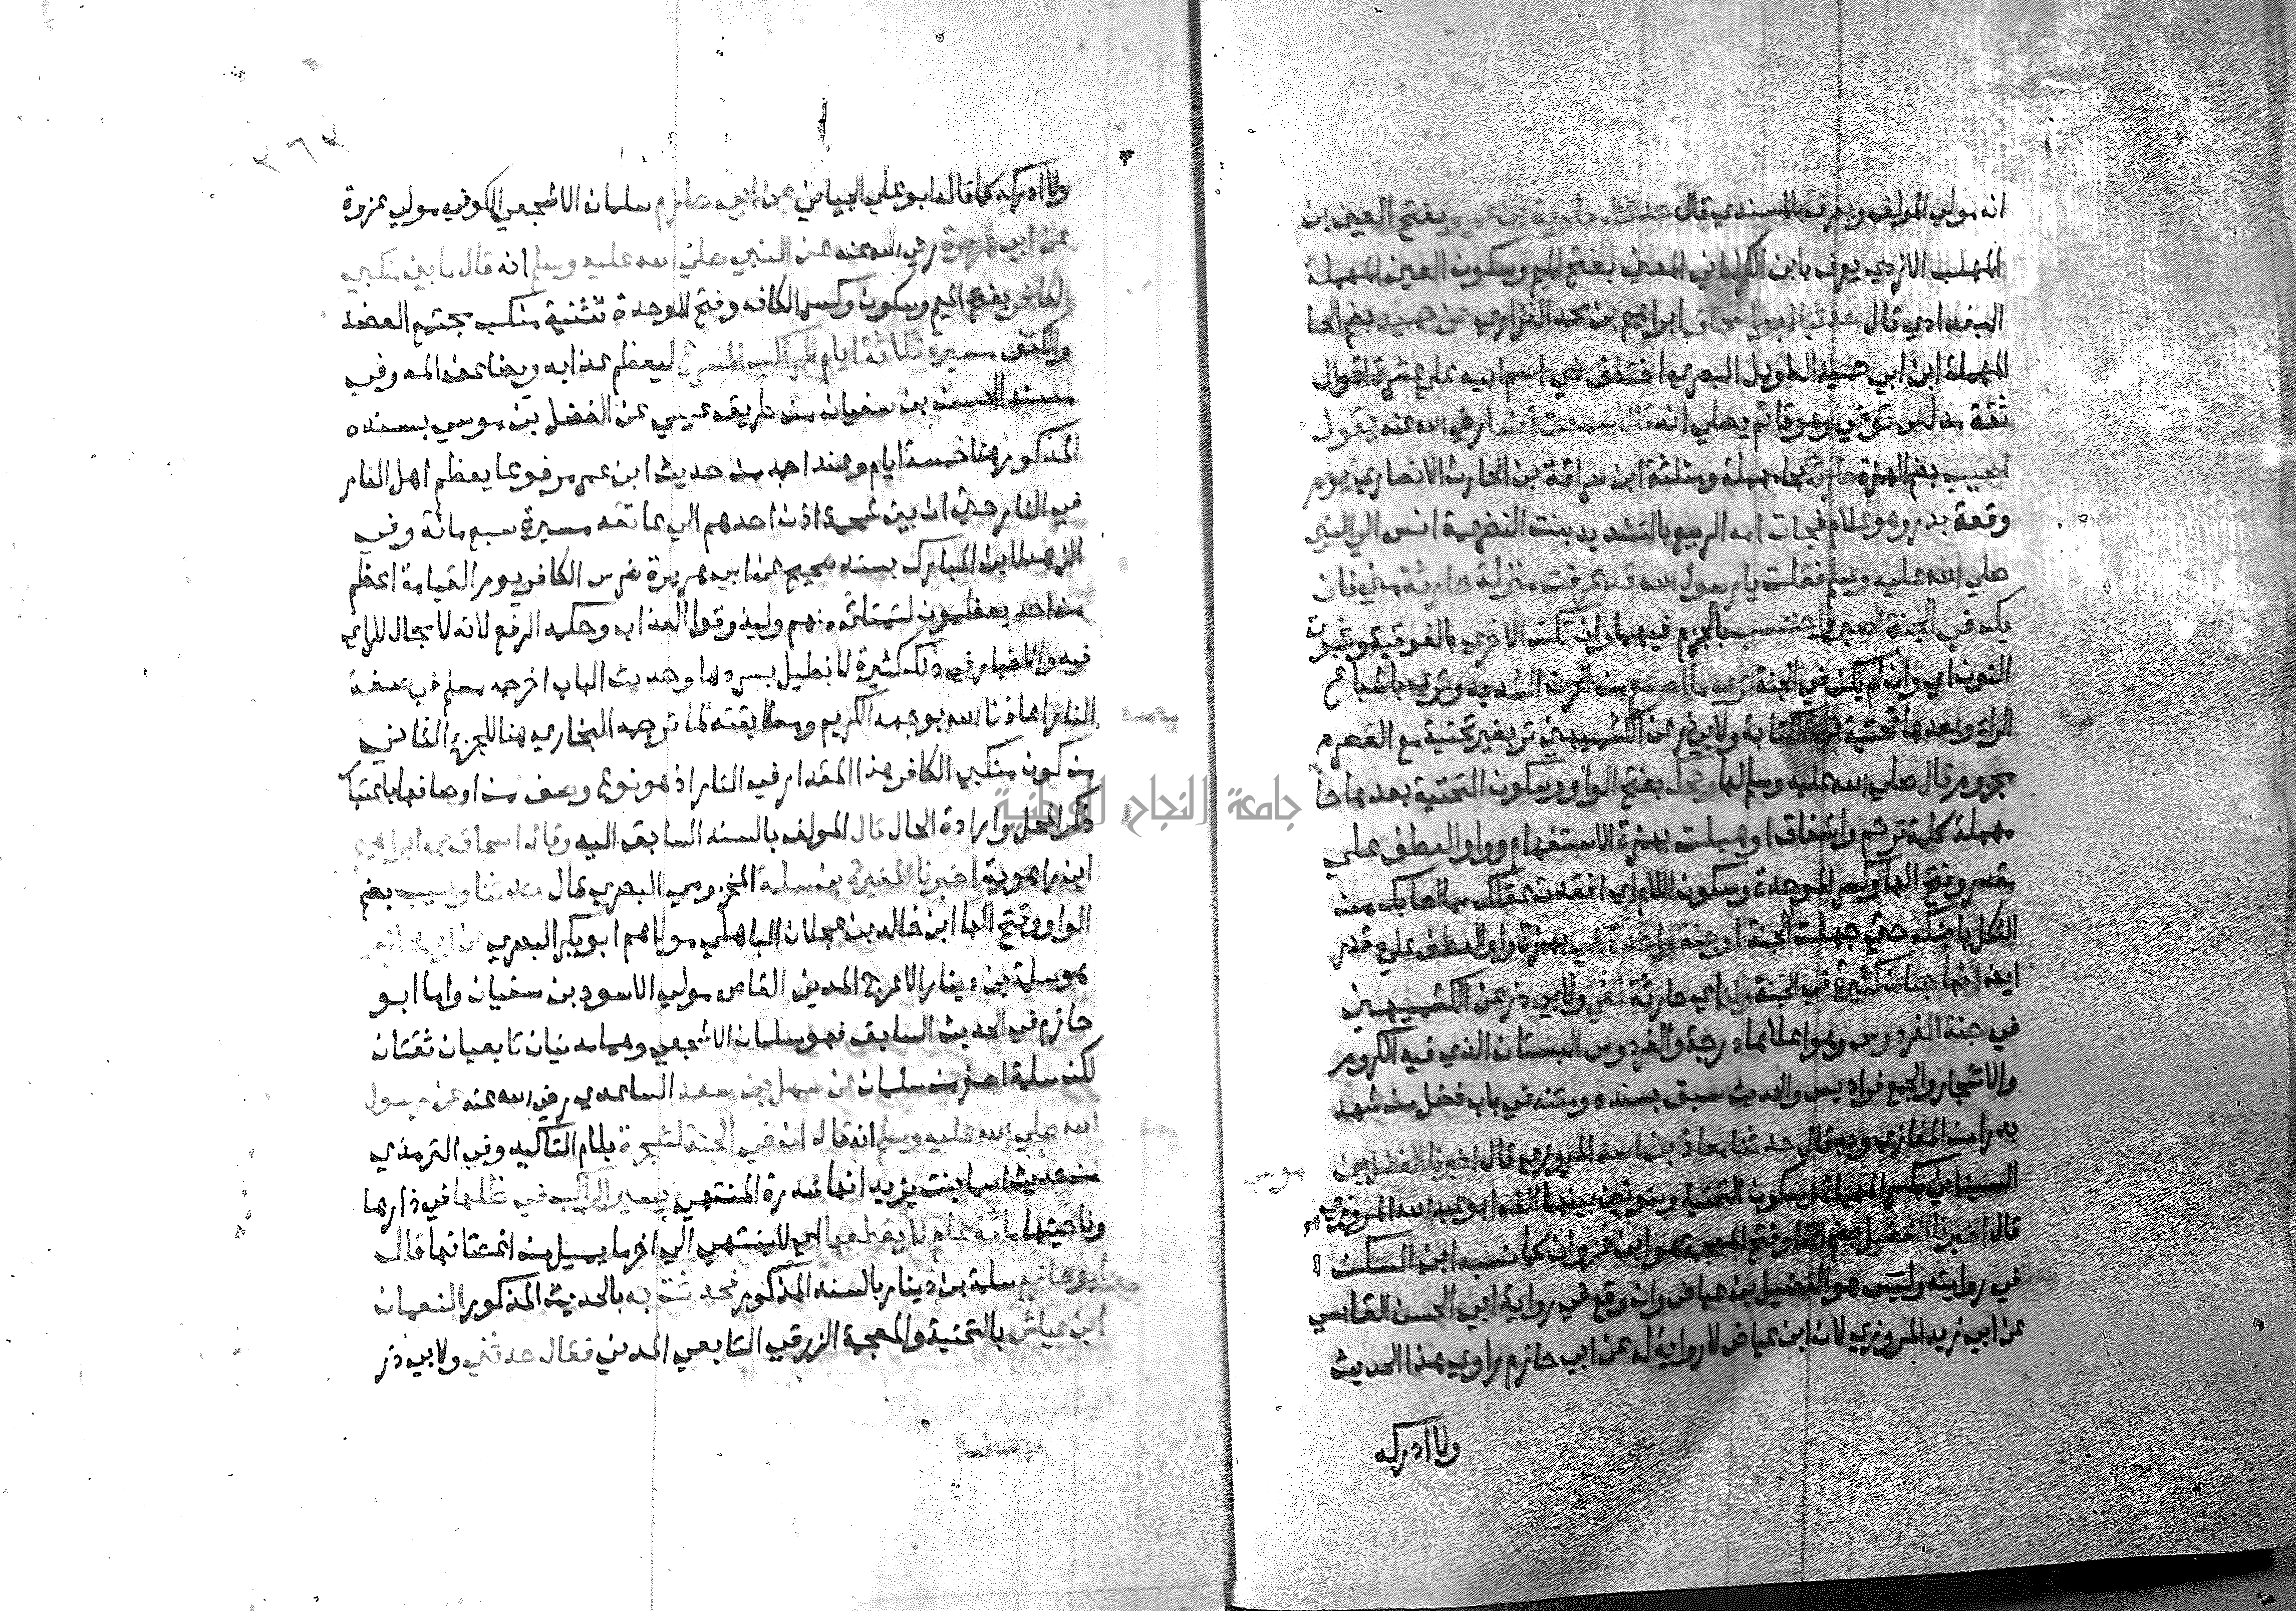 انه مولي المولف ويعرف بالمسندي قال حدثنا معاوية بن عمرو بفتح العين بن
المهلب الازدي يعرف بابن الكرماني المعني بفتح الميم وسكون العين المهملة
البغدادي قال حدثنا ابو اسحاق ابراهيم بن محمد الفزاري عن حميد بضم الحا
المهملة ابن ابي حميد الطويل البصري اختلف في اسم ابيه علي عشرة اقوال
ثقة مدلس توفي وهو قائم يصلي انه قال سمعت انسا رضي الله عنه يقول
اصيب بضم الهمزة حارثة بحا مهملة ومثلثة ابن سراقة بن الحارث الانصاري يوم
وقعة بدر وهو غلام فجات امه الربيع بالتشديد بنت النضر عمة انس الي النبي
صلي الله عليه وسلم فقالت يا رسول الله قد عرفت منزلة حارثة مني فان
يك في الجنة اصبر واحتسب بالجزم فيهما وان تكن الاخري بالفوقية وثبوت
النون اي وان لم يكن في الجنة تري ما اصنع من الحزن الشديد وتري باشباع
الراء وبعدها تحتية في الكتابة ولابي ذر عن الكشميهني تر بغير تحتية مع القصر
مجزوم قال صلي الله عليه وسلم لها ويحك بفتح الواو وسكون التحتية بعدها حا
مهملة كلمة ترحم واشفاق اوهبلت بهمزة الاستفهام وواو العطف علي
مقدر وفتح الها وكسر الموحدة وسكون اللام اي افقدت عقلك مما اصابك من
الثكل بابنك حتي جهلت الجنة اوجنة واحدة هي بهمزة واو العطف علي قدر
ايضا انها جنان كثيرة في الجنة وانه اي حارثة لفي ولابي ذر عن الكشميهني
في جنة الفردوس وهو اعلاها درجة والفردوس البستان الذي فيه الكروم
والاشجار والجمع فراديس والحديث سبق بسنده ومتنه في باب فضل من شهد
بدرا من المغازي وبه قال حدثنا معاذ بن اسد المروزي قال اخبرنا الفضل بن موسي
السيناني بكسر المهملة وسكون التحتية وبنونين بينهما الف ابو عبد الله المروزي
قال اخبرنا الفضيل بضم الفا وفتح المعجمة هو ابن غزوان كما نسبه ابن السكن
في روايته وليس هو الفضيل بن عياض وان وقع في رواية ابي الحسن القابسي
عن ابي زيد المروزي لان ابن عياض لا رواية له عن ابي حازم راوي هذا الحديث
ولا ادركه
جامعة النجاح الوطنية
٣٦٣
ولا ادركه كما قاله ابو علي الجياني عن ابي حازم سلمان الاشجعي الكوفي مولي عزة
عن ابي هريرة رضي الله عنه عن النبي صلي الله عليه وسلم انه قال ما بين منكبي
الكافر بفتح الميم وسكون وكسر الكاف وفتح الموحدة تثنية منكب مجتمع العضد
والكتف مسيرة ثلاثة ايام للراكب المسرع ليعظم عذابه ويضاعف المه وفي
مسند الحسن بن سفيان من طريق عيسي عن الفضل بن موسي بسنده
المذكور هنا خمسة ايام وعند احمد من حديث ابن عمر مرفوعا يعظم اهل النار
في النار حتي ان بين شحمة اذن احدهم الي عاتقه مسيرة سبع مائة وفي
الزهد لابن المبارك بسند صحيح عن ابي هريرة ضرس الكافر يوم القيامة اعظم
من احد يعظمون لتمتلئ منهم وليذوقوا العذاب وحكمه الرفع لانه لا مجال للراي
فيه والاخبار في ذلك كثيرة لا نطيل بسردها وحديث الباب اخرجه مسلم في صفة
النار اعاذنا الله بوجهه الكريم ومطابقته لما ترجمه البخاري هنا للجزء الثاني
من كون منكبي الكافر هذا المقدار في النار اذ هو نوع وصف من اوصافها باعتبار
ذكر المحل وارادة الحال قال المولف بالسند السابق اليه وقال اسحاق بن ابراهيم
ابن راهوية اخبرنا المغيرة بن سلمة المخزومي البصري قال حدثنا وهيب بضم
الواو وفتح الها ابن خالد بن عجلان الباهلي مولاهم ابو بكر البصري عن ابي حازم
هو سلمة بن دينار الاعرج المدني القاص مولي الاسود بن سفيان واما ابو
حازم في الحديث السابق فهو سلمان الاشجعي وهما مدنيان تابعيان ثقتان
لكن سلمة اصغر من سلمان عن سهل بن سعد الساعدي رضي الله عنه عن رسول
الله صلي الله عليه وسلم انه قال ان في الجنة لشجرة بلام التاكيد وفي الترمذي
من حديث اسما بنت يزيد انها سدرة المنتهي يسير الراكب في ظلها في ذارها
وناحيتها مائة عام لا يقطعها اي لا ينتهي الي اخر ما يميل من اغصانها قال
ابو حازم سلمة بن دينار بالسند المذكور فحدثت به بالحديث المذكور النعمان
ابن عياش بالتحتية والمعجمة الزرقي التابعي المدني فقال حدثني ولابي ذر